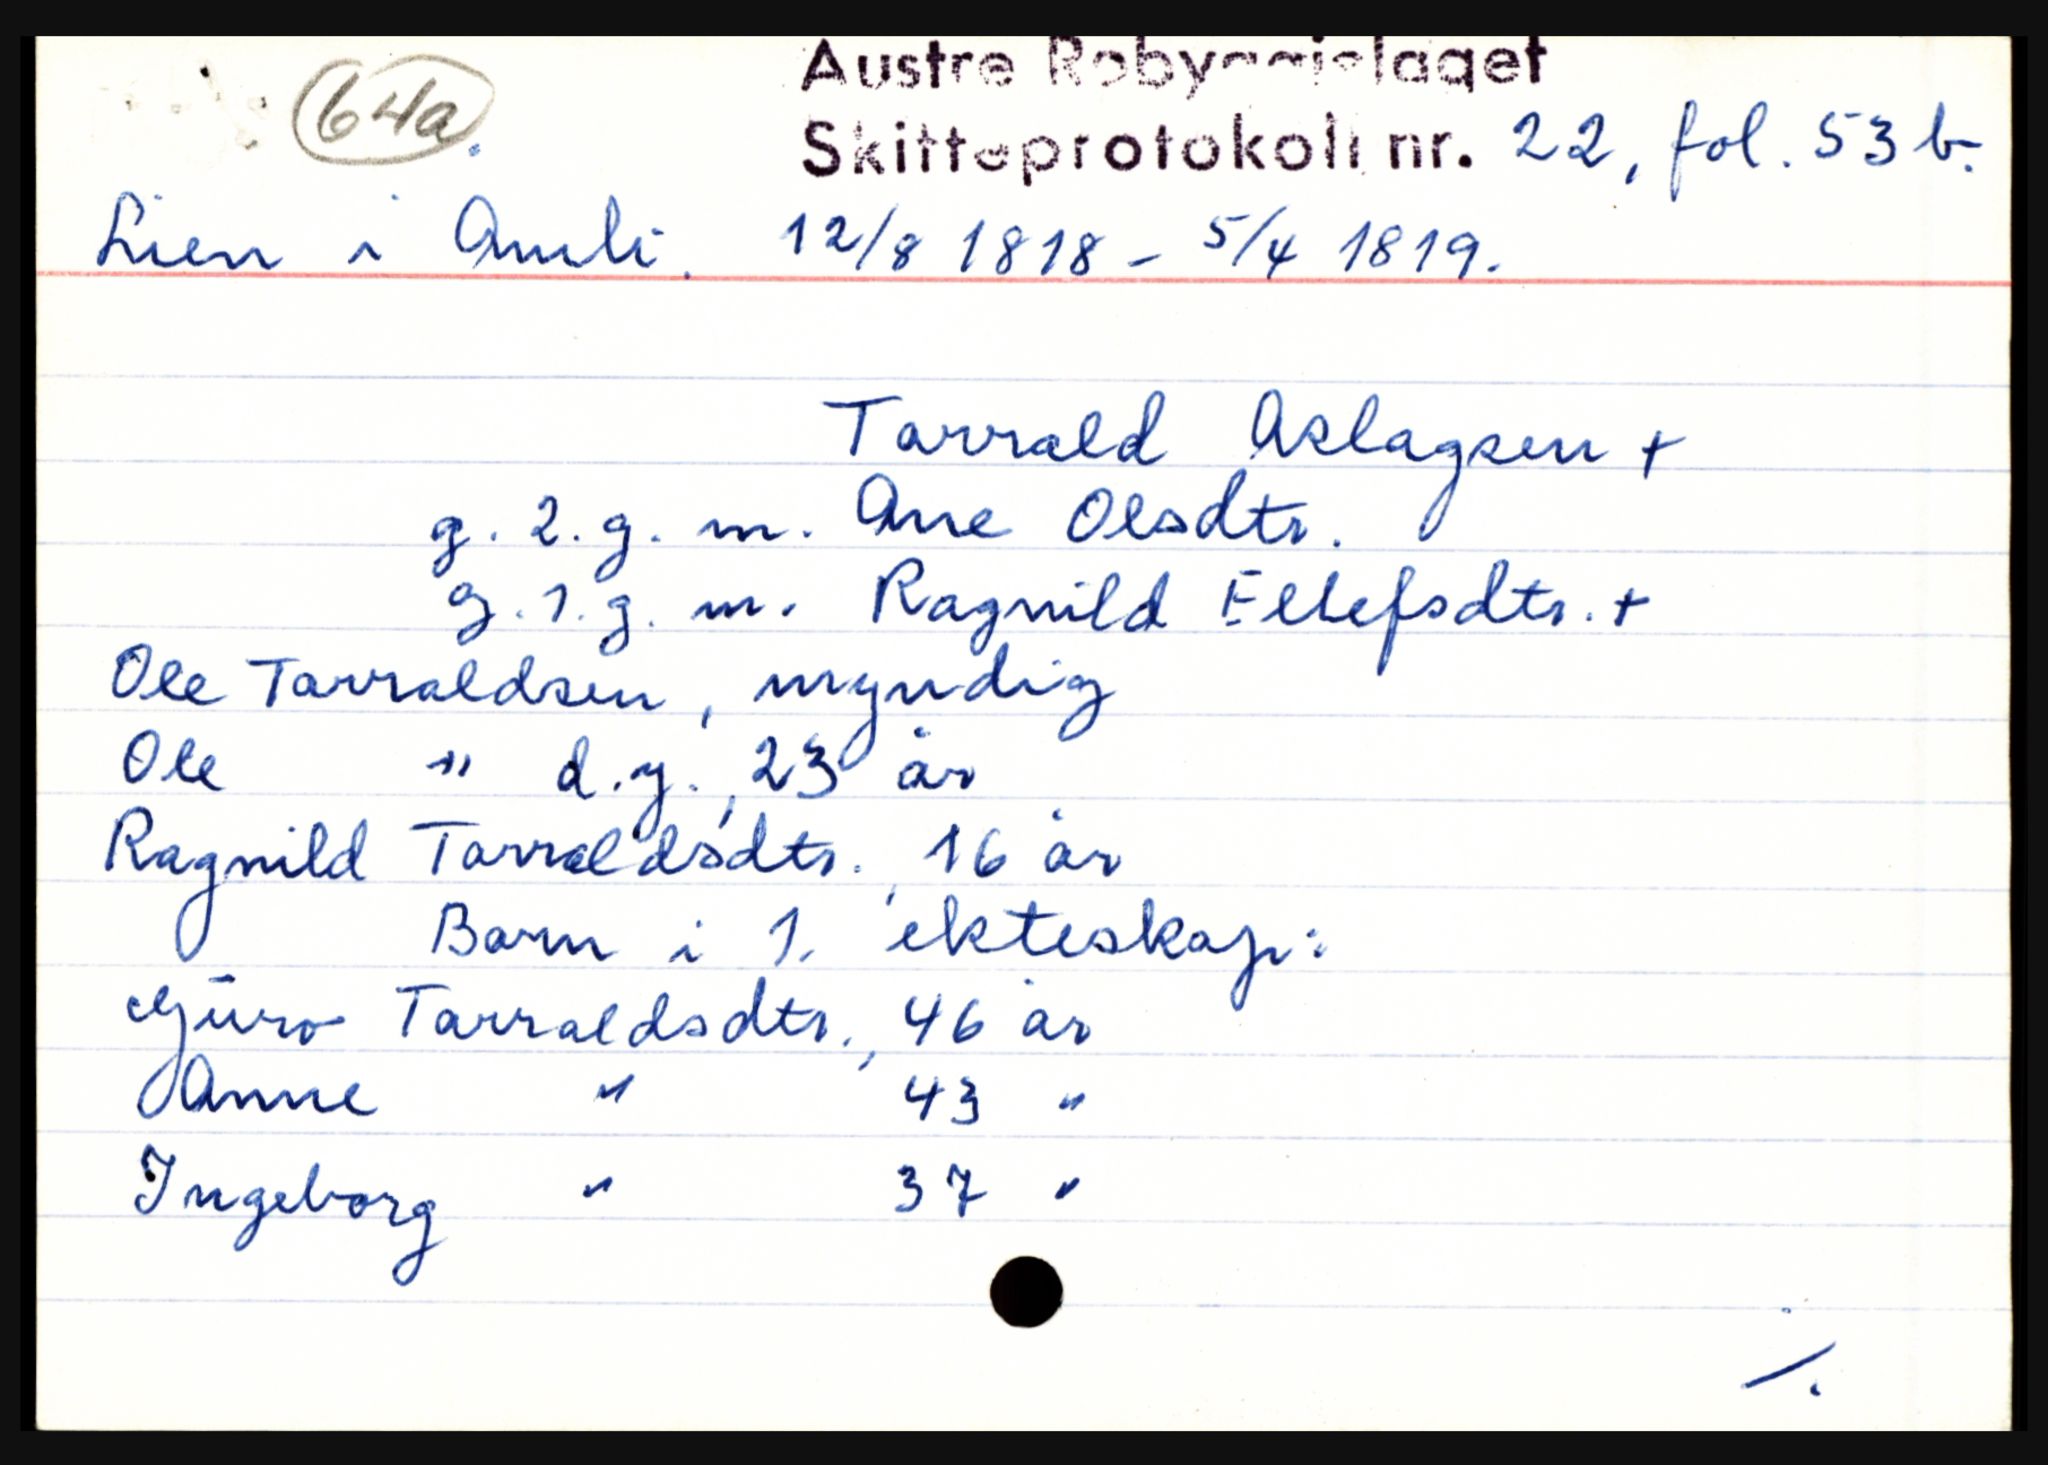 64a
Austre Robyggjelaget
Skifteprotokoll nr. 22, fol. 53 b.
Lien i Amli. 12/8 1818 - 5/4 1819.
Tarrald Aslagsen +
g. 2. g. m. Ane Olsdtr.
g. 1. g. m. Ragnild Ellefsdtr. +
Ole Tarraldsen, myndig
Ole " d.y., 23 år
Ragnild Tarraldsdtr., 16 år
Barn i 1. ekteskap:
Gjuro Tarraldsdtr., 46 år
Anne " 43 "
Ingeborg " 37 "
./.